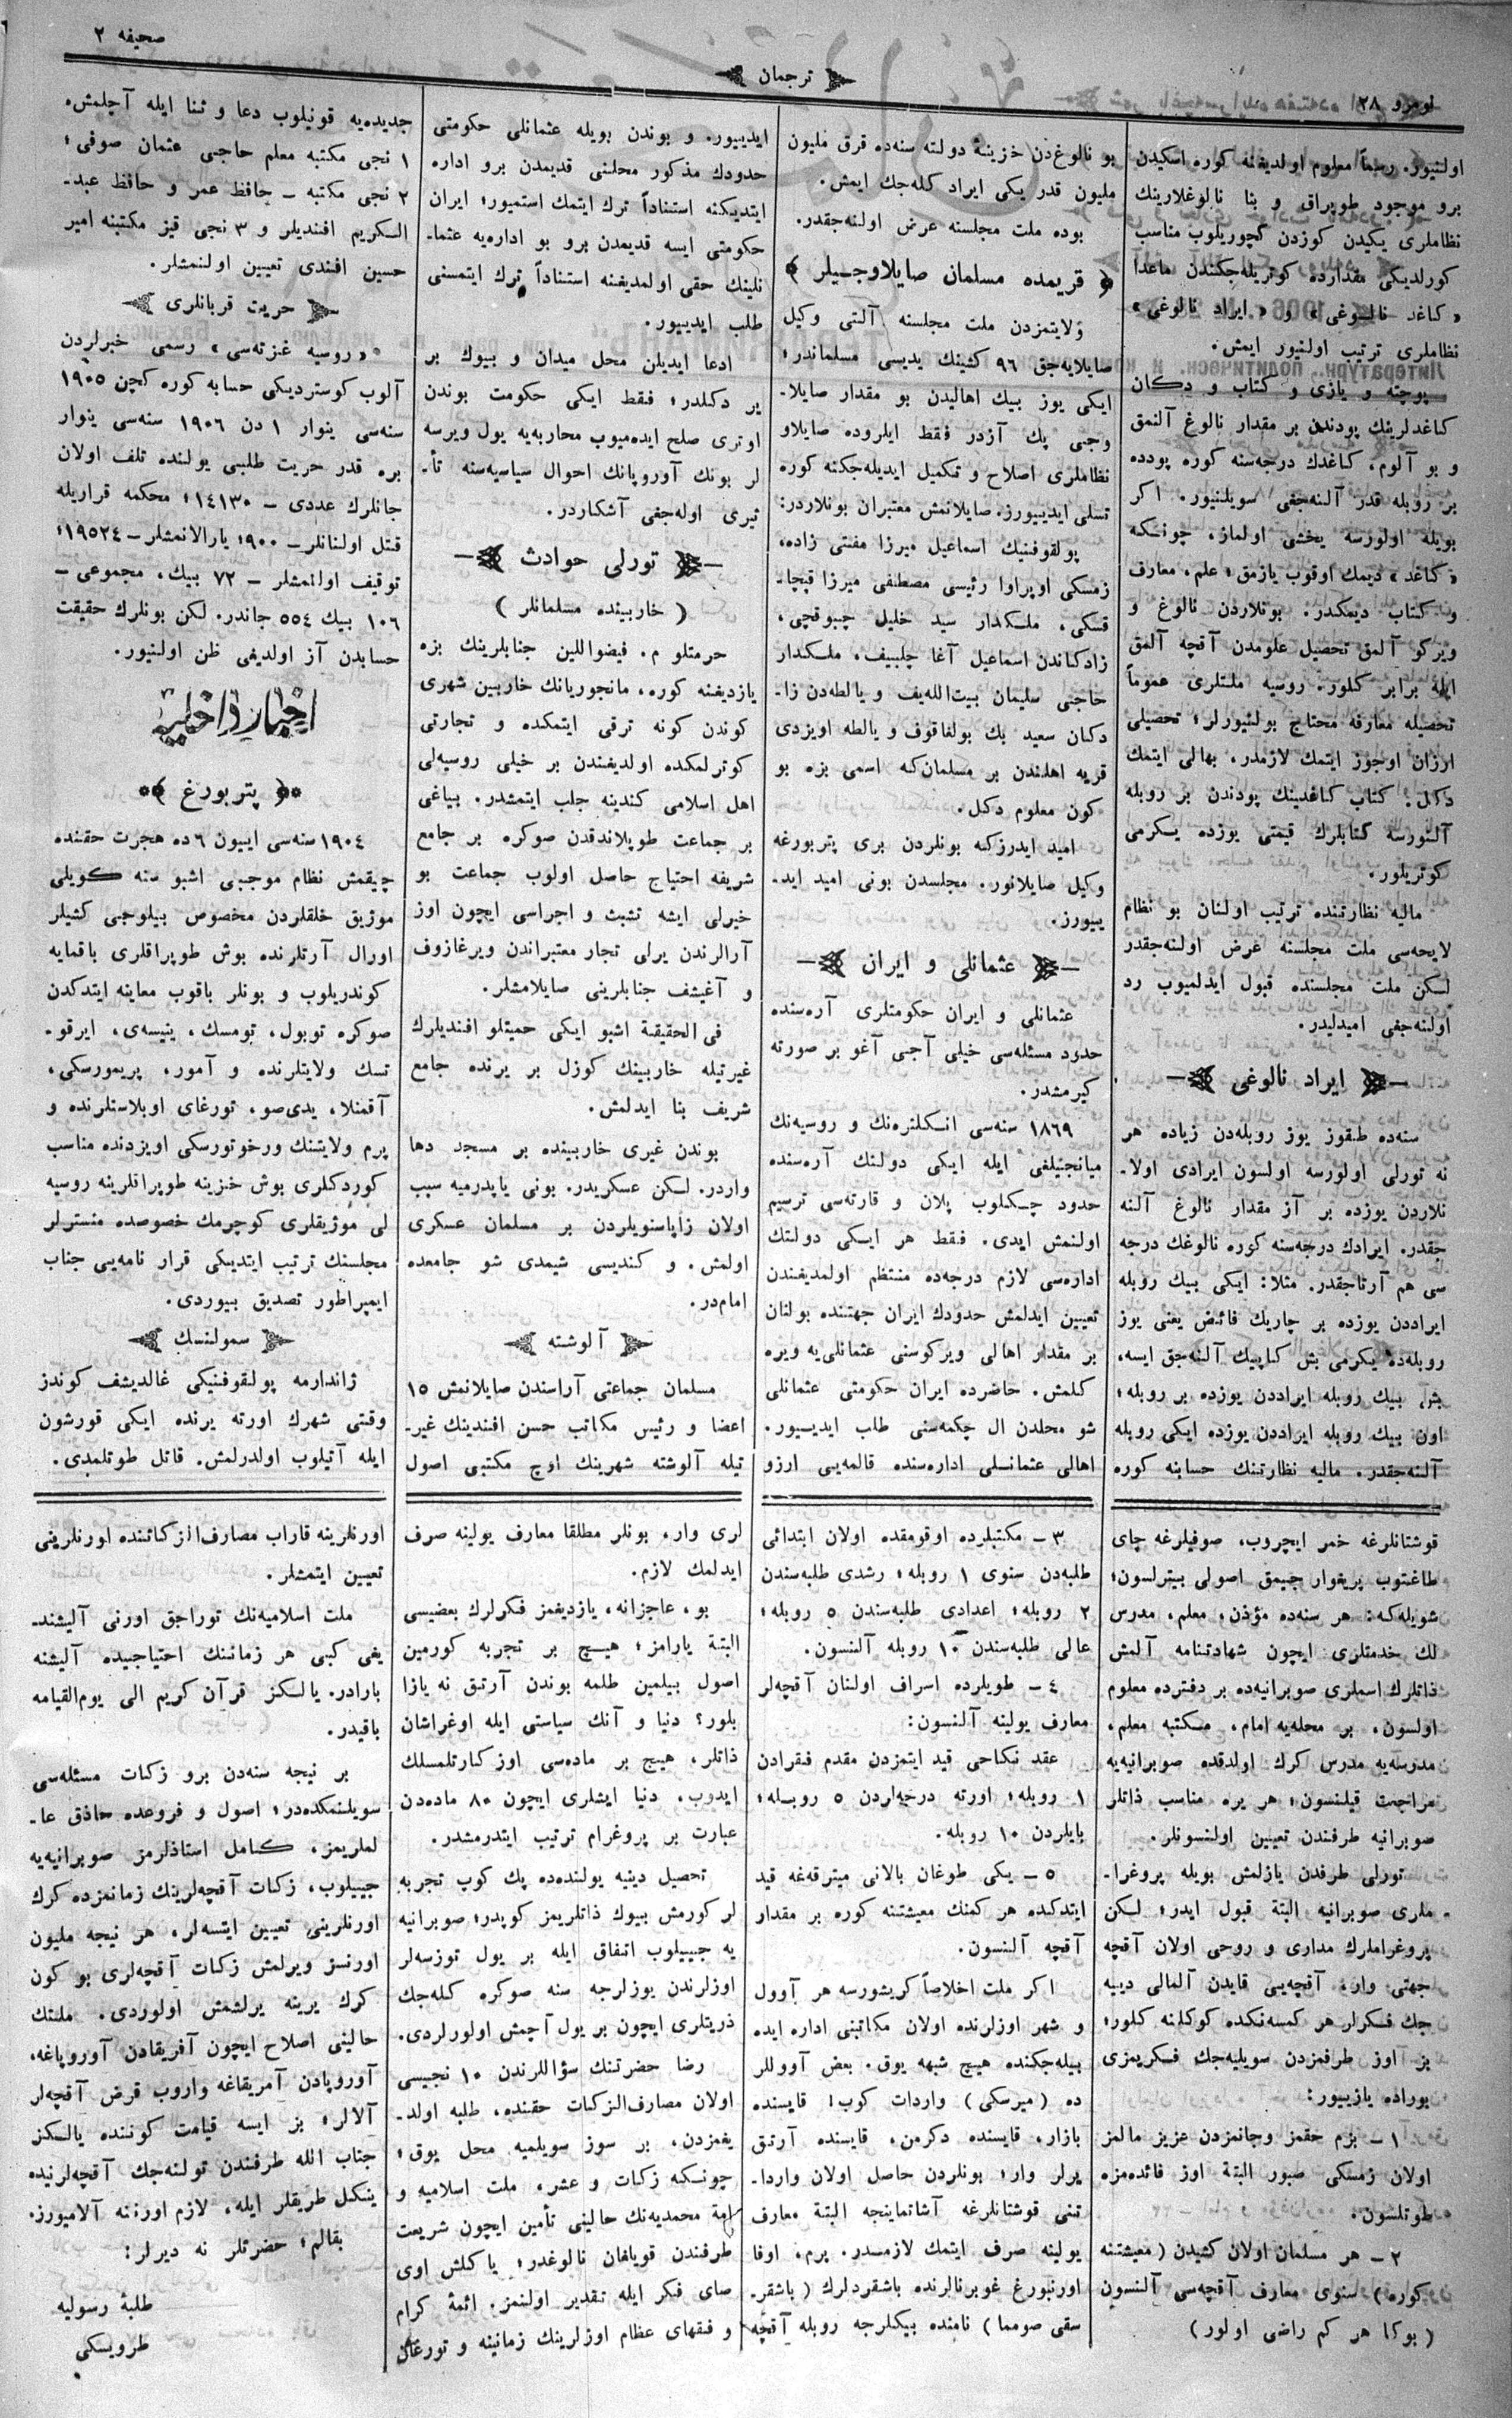 نومرو ٢٨
ترجمان
صحیفه ٢
اولنیور. رسماً معلوم اولدیغنه کوره اسکیدن
برو موجود طوپراق و بنا نالوغلارینك
نظاملری یکیدن کوزدن کچوریلوب مناسب
کورلدیکی مقدارده کوتریله‌جکندن ماعدا
«کاغد نالوغی» و «ایراد نالوغی»
نظاملری ترتیب اولنیور ایمش.
پوچته و یازی و کتاب و دکان
کاغدلرینك پودندن بر مقدار نالوغ آلنمق
و بو آلوم، کاغدك درجه‌سنه کوره پودده
بر روبله قدر آلنه‌جغی سویلنیور. اکر
بویله اولورسه یخشی اولماز، چونکه
«کاغد» دیمك اوقوب یازمق؛ علم، معارف
و کتاب دیمکدر. بونلاردن نالوغ و
ویرکو آلمق تحصیل علومدن آقچه آلمق
ایله برابر کلور. روسیه ملتلری عموماً
تحصیله معارفه محتاج بولنیورلر؛ تحصیلی
ارزان اوجوز ایتمك لازمدر، بهالی ایتمك
دکل. کتاب کاغدینك پودندن بر روبله
آلنورسه کتابلرك قیمتی یوزده یکرمی
کوتریلور.
مالیه نظارتنده ترتیب اولنان بو نظام
لایحه‌سی ملت مجلسنه عرض اولنه‌جقدر
لکن ملت مجلسنده قبول ایدلمیوب رد
اولنه‌جغی امیدلیدر.
ایراد نالوغی
سنه‌ده طقوز یوز روبله‌دن زیاده هر
نه تورلی اولورسه اولسون ایرادی اولا-
نلاردن یوزده بر آز مقدار نالوغ آلنه
جقدر. ایرادك درجه‌سنه کوره نالوغك درجه
سی هم آرتاجقدر. مثلا: ایکی بیك روبله
ایراددن یوزده بر چاریك فائض یعنی یوز
روبله‌ده یکرمی بش کاپیك آلنه‌جق ایسه،
بش بیك روبله ایراددن یوزده بر روبله؛
اون بیك روبله ایراددن یوزده ایکی روبله
آلنه‌جقدر. مالیه نظارتنك حسابنه کوره
بو نالوغ‌دن خزینهٔ دولته سنه‌ده قرق ملیون
ملیون قدر یکی ایراد کله‌جك ایمش.
بوده ملت مجلسنه عرض اولنه‌جقدر.
﴿ قریمده مسلمان صایلاوجیلر ﴾
ولایتمزدن ملت مجلسنه آلتی وکیل
صایلایه‌جق ٩٦ کشینك یدیسی مسلماندر؛
ایکی یوز بیك اهالیدن بو مقدار صایلا-
وجی پك آزدر فقط ایلروده صایلاو
نظاملری اصلاح و تکمیل ایدیله‌جکنه کوره
تسلی ایدییورز. صایلانمش معتبران بونلاردر:
پولقوفنیك اسماعیل میرزا مفتی زاده،
زمسکی اوپراوا رئیسی مصطفی میرزا قپچا-
قسکی، ملکدار سید خلیل چبوقچی،
زادکاندن اسماعیل آغا چلبییف، ملکدار
حاجی سلیمان بیت‌الله‌یف و یالطه‌دن زا-
دکان سعید بك بولفاقوف و یالطه اویزدی
قریه اهلندن بر مسلمان‌که اسمی بزه بو
کون معلوم دکل.
امید ایدرزکه بونلردن بری پتربورغه
وکیل صایلانور. مجلسدن بونی امید اید-
ییورز.
عثمانلی و ایران
عثمانلی و ایران حکومتلری آره‌سنده
حدود مسئله‌سی خیلی آجی آغو بر صورته
کیرمشدر.
١٨٦٩ سنه‌سی انکلتره‌نك و روسیه‌نك
میانجیلغی ایله ایکی دولتك آره‌سنده
حدود چکلوب پلان و قارته‌سی ترسیم
اولنمش ایدی. فقط هر ایکی دولتك
اداره‌سی لازم درجه‌ده منتظم اولمدیغندن
تعیین ایدلمش حدودك ایران جهتنده بولنان
بر مقدار اهالی ویرکوسنی عثمانلی‌یه ویره
کلمش. حاضرده ایران حکومتی عثمانلی
شو محلدن ال چکمه‌سنی طلب ایدییور.
اهالی عثمانلی اداره‌سنده قالمه‌یی ارزو
ایدییور. و بوندن بویله عثمانلی حکومتی
حدودك مذکور محلنی قدیمدن برو اداره
ایتدیکنه استناداً ترك ایتمك استمیور؛ ایران
حکومتی ایسه قدیمدن برو بو اداره‌یه عثما-
نلینك حقی اولمدیغنه استناداً ترك ایتمسنی
طلب ایدییور.
ادعا ایدیلن محل میدان و بیوك بر
یر دکلدر؛ فقط ایکی حکومت بوندن
اوتری صلح ایده‌میوب محاربه‌یه یول ویرسه
لر بونك آوروپانك احوال سیاسیه‌سنه تأ-
ثیری اوله‌جغی آشکاردر.
تورلی حوادث
( خاربینده مسلمانلر )
حرمتلو م. فیضواللین جنابلرینك بزه
یازدیغنه کوره، مانجوریانك خاربین شهری
کوندن کونه ترقی ایتمکده و تجارتی
کوترلمکده اولدیغندن بر خیلی روسیه‌لی
اهل اسلامی کندینه جلب ایتمشدر. بیاغی
بر جماعت طوپلاندقدن صوکره بر جامع
شریفه احتیاج حاصل اولوب جماعت بو
خیرلی ایشه تشبث و اجراسی ایچون اوز
آرالرندن یرلی تجار معتبراندن ویرغازوف
و آغیشف جنابلرینی صایلامشلر.
فی الحقیقة اشبو ایکی حمیتلو افندیلرك
غیرتیله خاربینك کوزل بر یرنده جامع
شریف بنا ایدلمش.
بوندن غیری خاربینده بر مسجد دها
واردر. لکن عسکریدر. بونی یاپدرمیه سبب
اولان زاپاسنویلردن بر مسلمان عسکری
اولمش. و کندیسی شیمدی شو جامعده
امام‌در.
آلوشته
مسلمان جماعتی آراسندن صایلانمش ١٥
اعضا و رئیس مکاتب حسن افندینك غیر-
تیله آلوشته شهرینك اوچ مکتبی اصول
جدیده‌یه قونیلوب دعا و ثنا ایله آچلمش.
١ نجی مکتبه معلم حاجی عثمان صوفی؛
٢ نجی مکتبه – حافظ عمر و حافظ عبد-
الکریم افندیلر و ٣ نجی قیز مکتبنه امیر
حسین افندی تعیین اولنمشلر.
حریت قربانلری
«روسیه غزته‌سی» رسمی خبرلردن
آلوب کوستردیکی حسابه کوره کچن ١٩٠٥
سنه‌سی ینوار ١ دن ١٩٠٦ سنه‌سی ینوار
بره قدر حریت طلبی یولنده تلف اولان
جانلرك عددی – ١٤١٣٠؛ محکمه قراریله
قتل اولنانلر – ٩٠٠؛ یارالانمشلر – ١٩٥٢٤؛
توقیف اولنمشلر – ٧٢ بیك، مجموعی –
١٠٦ بیك ٥٥٤ جاندر. لکن بونلرك حقیقت
حسابدن آز اولدیغی ظن اولنیور.
اخبار داخلیه
﴿ پتربورغ ﴾
١٩٠٤ سنه‌سی ایییون ٦ ده هجرت حقنده
چیقمش نظام موجبی اشبو سنه کویلی
موژیق خلقلردن مخصوص بیلوجی کشیلر
اورال آرتلرنده بوش طوپراقلری باقمایه
کوندریلوب و بونلر باقوب معاینه ایتدکدن
صوکره توبول، تومسك، ینیسه‌ی، ایرقو-
تسك ولایتلرنده و آمور، پریمورسکی،
آقمنلا، یدی‌صو، تورغای اوبلاستلرنده و
پرم ولایتنك ورخوتورسکی اویزدنده مناسب
کوردکلری بوش خزینه طوپراقلرینه روسیه
لی موژیقلری کوچرمك خصوصده منسترلر
مجلسنك ترتیب ایتدیکی قرار نامه‌یی جناب
ایمپراطور تصدیق بیوردی.
سمولنسك
ژاندارمه پولقوفنیکی غالدیشف کوندز
وقتی شهرك اورته یرنده ایکی قورشون
ایله آتیلوب اولدرلمش. قاتل طوتلمدی.
قوشتانلرغه خمر ایچروب، صوفیلرغه چای
طاغتوب پریغوار چیمق اصولی بیترلسون؛
شویله‌که: هر سنه‌ده مؤذن، معلم، مدرس
لك خدمتلری ایچون شهادتنامه آلمش
ذاتلرك اسملری صوبرانیه‌ده بر دفترده معلوم
اولسون، بر محله‌یه امام، مکتبه معلم،
مدرسه‌یه مدرس کرك اولدقده صوبرانیه‌یه
مراجعت قیلنسون؛ هر یره مناسب ذاتلر
صوبرانیه طرفندن تعیین اولنسونلر.
تورلی طرفدن یازلمش بویله پروغرا-
ملری صوبرانیه البته قبول ایدر؛ لکن
پروغراملرك مداری و روحی اولان آقچه
جهتی وار، آقچه‌یی قایدن آلمالی دییه
جك فکرلر هر کمسه‌نکده کوکلنه کلور؛
بز اوز طرفمزدن سویلیه‌جك فکریمزی
بوراده یازییور:
١ – بزم حقمز وجانمزدن عزیز مالمز
اولان زمسکی صبور البته اوز فائده‌مزه
طوتلسون.
٢ – هر مسلمان اولان کشیدن (معیشتنه
کوره) سنوی معارف آقچه‌سی آلنسون
( بوکا هر کم راضی اولور)
٣ – مکتبلرده اوقومقده اولان ابتدائی
طلبه‌دن سنوی ١ روبله؛ رشدی طلبه‌سندن
٢ روبله؛ اعدادی طلبه‌سندن ٥ روبله؛
عالی طلبه‌سندن ١٠ روبله آلنسون.
٤ – طویلرده اسراف اولنان آقچه‌لر
معارف یولینه آلنسون:
عقد نکاحی قید ایتمزدن مقدم فقرادن
١ روبله؛ اورته درجه‌لردن ٥ روبله؛
بایلردن ١٠ روبله.
٥ – یکی طوغان بالانی میترقه‌غه قید
ایتدکده هر کمنك معیشتنه کوره بر مقدار
آقچه آلنسون.
اکر ملت اخلاصاً کریشورسه هر آوول
و شهر اوزلرنده اولان مکاتبنی اداره ایده
بیله‌جکنده هیچ شبهه یوق. بعض آووللر
ده (میرسکی) واردات کوب! قایسنده
بازار، قایسنده دکرمن، قایسنده آرتق
یرلر وار؛ بونلردن حاصل اولان واردا-
تنی قوشتانلرغه آشاتماینجه البته معارف
یولینه صرف ایتمك لازمدر. پرم، اوفا
اورنبورغ غوبرنالرنده باشقردلرك (باشقر-
سقی صومما) نامنده بیکلرجه روبله آقچه
لری وار، بونلر مطلقا معارف یولینه صرف
ایدلمك لازم.
بو، عاجزانه، یازدیغمز فکرلرك بعضیسی
البتة یارامز؛ هیچ بر تجربه کورمین
اصول بیلمین طلمه بوندن آرتق نه یازا
بلور؟ دنیا و آنك سیاستی ایله اوغراشان
ذاتلر، هیچ بر ماده‌سی اوزکارتلمسلك
ایدوب، دنیا ایشلری ایچون ٨٠ ماده‌دن
عبارت بر پروغرام ترتیب ایتدرمشدر.
تحصیل دینیه یولنده‌ده پك کوپ تجربه
لر کورمش بیوك ذاتلریمز کوپدر؛ صوبرانیه
یه جیییلوب اتفاق ایله بر یول توزسه‌لر
اوزلرندن یوزلرجه سنه صوکره کله‌جك
ذریتلری ایچون بر یول آچمش اولورلردی.
رضا حضرتنك سؤاللرندن ١٠ نجیسی
اولان مصارف‌الزکات حقنده، طلبه اولد-
یغمزدن، بر سوز سویلمیه محل یوق؛
چونکه زکات و عشر، ملت اسلامیه و
امة محمدیه‌نك حالینی تأمین ایچون شریعت
طرفندن قویلغان نالوغدر؛ یاکلش اوی
صای فکر ایله تقدیر اولنمز. ائمهٔ کرام
و فقهای عظام اوزلرینك زمانینه و تورغان
اورنلرینه قاراب مصارف‌الزکاتنده اورنلرینی
تعیین ایتمشلر.
ملت اسلامیه‌نك توراجق اورنی آلیشند-
یغی کبی هر زماننك احتیاجییده آلیشنه
بارادر. یالکز قرآن کریم الی یوم‌القیامه
باقیدر.
بر نیجه سنه‌دن برو زکات مسئله‌سی
سویلنمکده‌در؛ اصول و فروعده حاذق عا-
لملریمز، کامل استاذلرمز صوبرانیه‌یه
جیییلوب، زکات آقچه‌لرینك زمانمزده کرك
اورنلرینی تعیین ایتسه‌لر، هر نیجه ملیون
اورنسز ویرلمش زکات آقچه‌لری بو کون
کرك یرینه یرلشمش اولوردی. ملتك
حالینی اصلاح ایچون آفریقادن آوروپاغه،
آوروپادن آمریقاغه واروب قرض آقچه‌لر
آلالر؛ بز ایسه قیامت کوننده یالکز
جناب الله طرفندن تولنه‌جك آقچه‌لرنیده
ینکل طریقلر ایله، لازم اورننه آلامیورز.
بقالم؛ حضرتلر نه دیرلر:
طلبهٔ رسولیه
طرویسکی